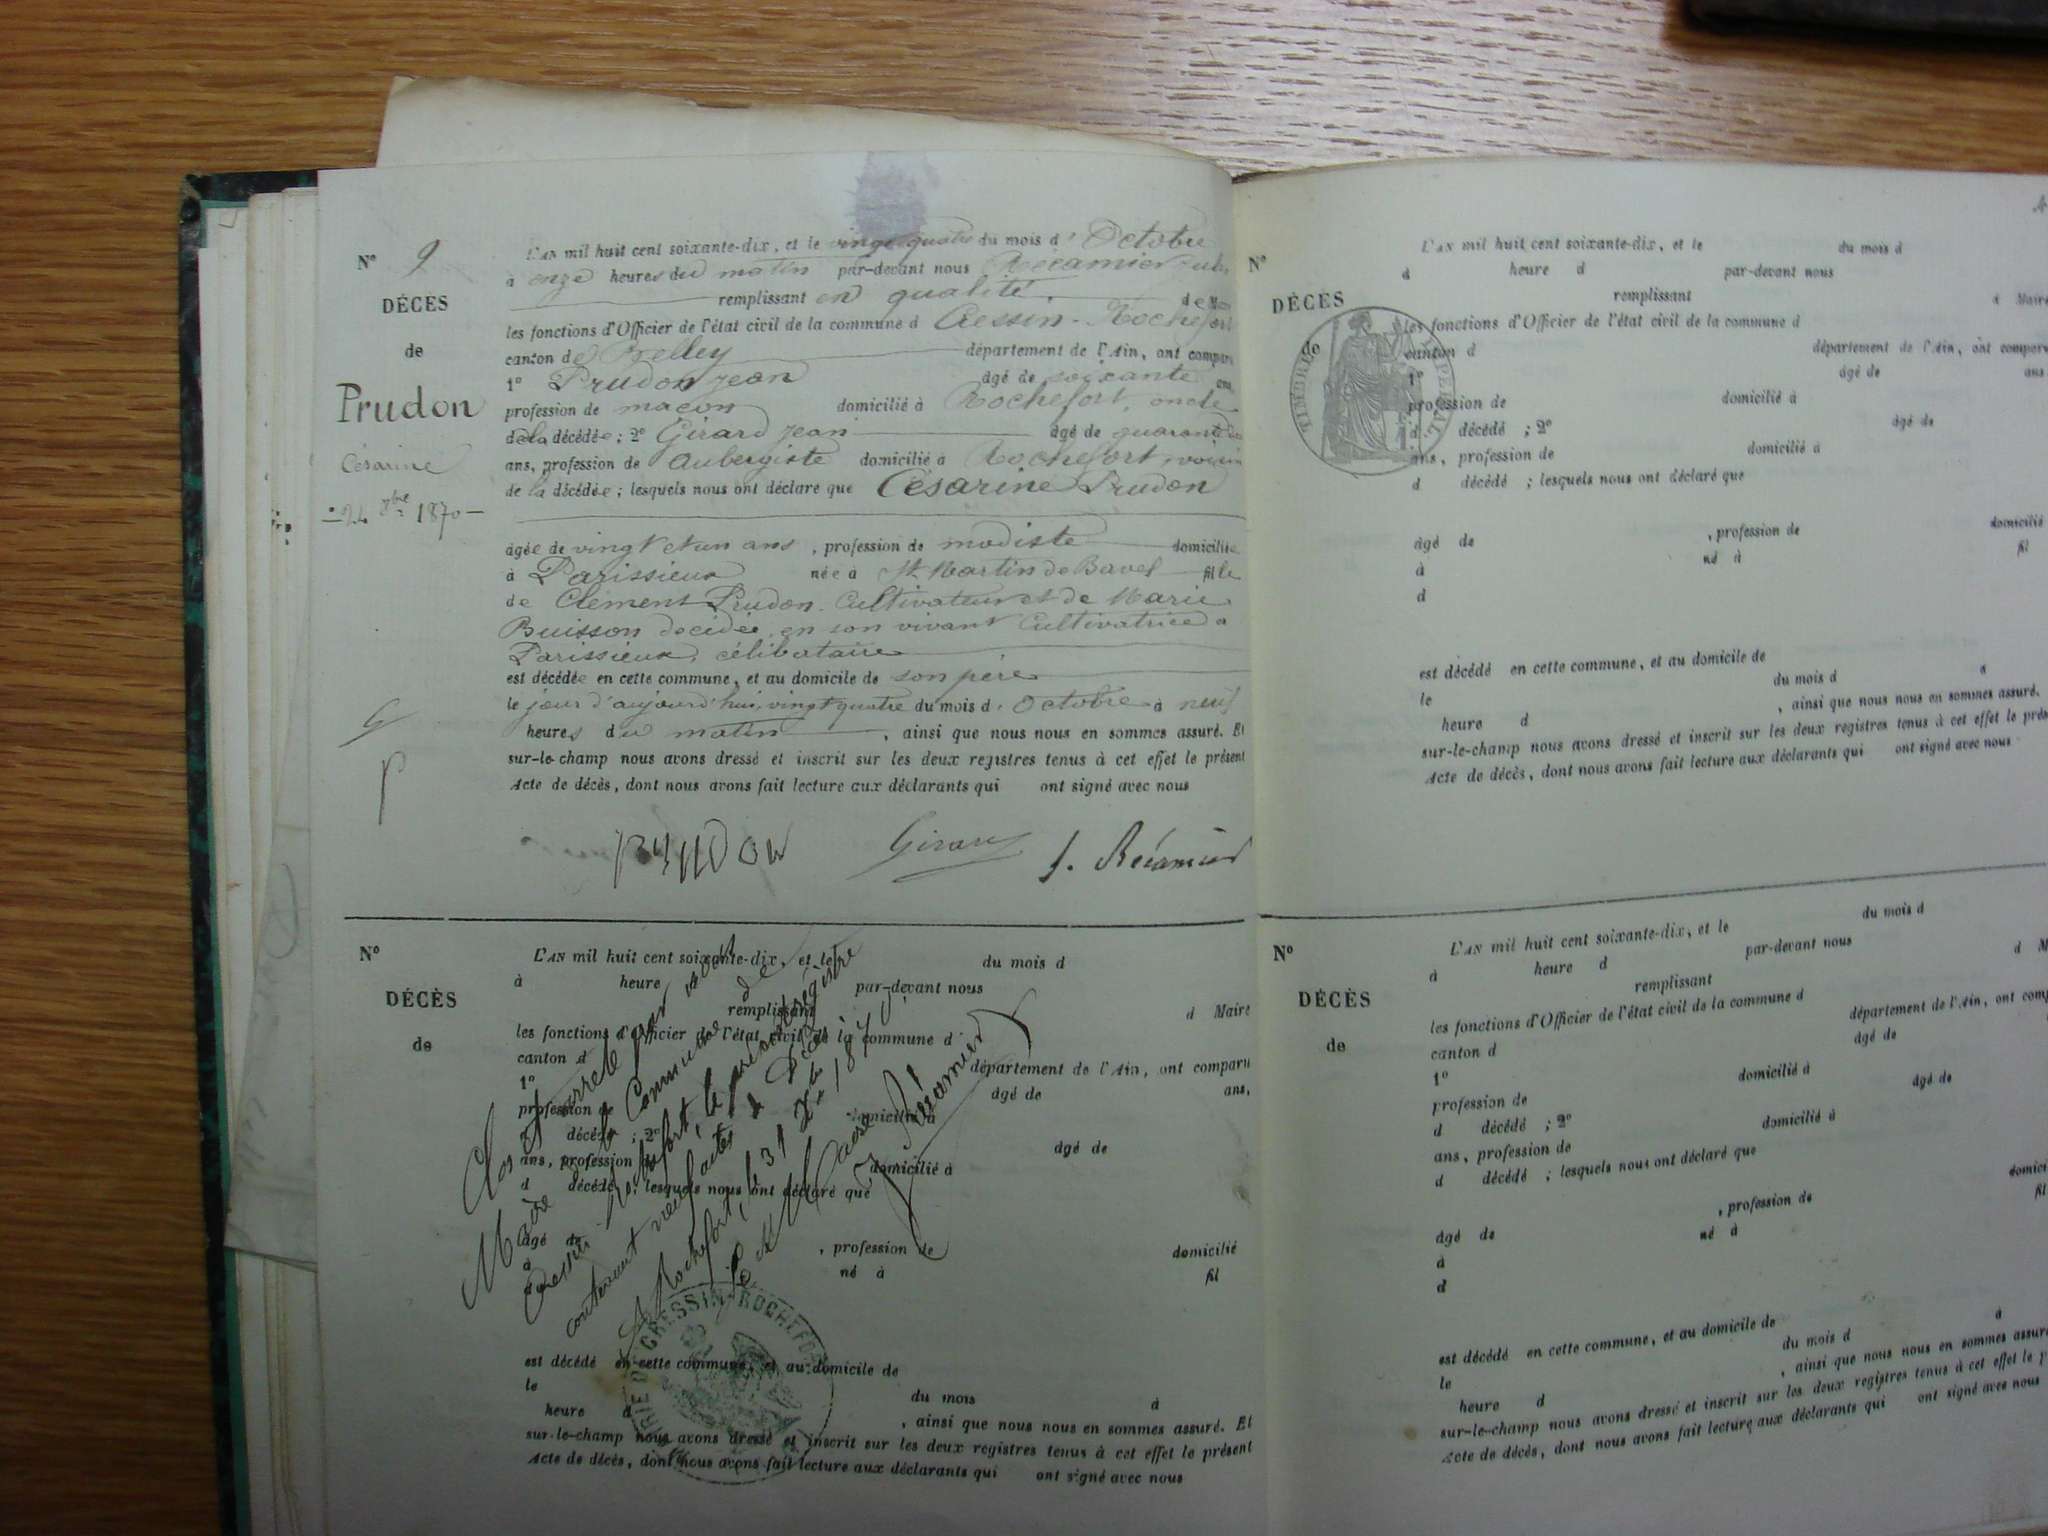 Nº 9
DÉCÈS
de
Prudon
Césarine
24 8bre 1870
L'AN mil huit cent soixante-dix, et le vingt quatre du mois d' Octobre
à onze heures du matin par-devant nous Récamier
remplissant en qualité de Maire
les fonctions d'Officier de l'état civil de la commune d Cressin-Rochefort
canton de Belley département de l'Ain, ont comparu
1º Prudon Jean âgé de soixante ans
profession de maçon domicilié à Rochefort, oncle
de la décédée ; 2º Girard Jean âgé de quarante
ans, profession de Aubergiste domicilié à Rochefort, voisin
de la décédée ; lesquels nous ont déclaré que Césarine Prudon
âgée de vingt et un ans , profession de modiste domiciliée
à Parissieux née à St Martin de Bavel fille
de Clément Prudon Cultivateur et de Marie
Buisson décédée, en son vivant Cultivatrice à
Parissieux, célibataire
est décédée en cette commune, et au domicile de son père
le jour d'aujourd'hui, vingt quatre du mois d' Octobre à neuf
heures du matin , ainsi que nous nous en sommes assuré. Et
sur-le-champ nous avons dressé et inscrit sur les deux registres tenus à cet effet le présent
Acte de décès, dont nous avons fait lecture aux déclarants qui ont signé avec nous
G
P
PRUDON Girard J. Récamier
Nº
DÉCÈS
de
L'AN mil huit cent soixante-dix, et le du mois d
à heure par-devant nous
remplissant d Maire
les fonctions d'Officier de l'état civil de la commune d
canton d département de l'Ain, ont comparu
1º âgé de ans,
profession de domicilié à
d décédé ; 2º âgé de
ans, profession de domicilié à
d décédé ; lesquels nous ont déclaré que
âgé de , profession de domicilié
à né à fil
d
est décédé en cette commune, et au domicile de
le du mois à
heure d , ainsi que nous nous en sommes assuré. Et
sur-le-champ nous avons dressé et inscrit sur les deux registres tenus à cet effet le présent
Acte de décès, dont nous avons fait lecture aux déclarants qui ont signé avec nous
Clos et arrêté par nous
Maire de la Commune de
Cressin-Rochefort, le présent registre
contenant neuf actes de Décès
à Rochefort, le 31 Xbre 1870
Le Maire
J Récamier
MAIRIE DE CRESSIN-ROCHEFORT
Nº
DÉCÈS
de
TIMBRE IMPERIAL
L'AN mil huit cent soixante-dix, et le du mois d
à heure d par-devant nous
remplissant d Maire
les fonctions d'Officier de l'état civil de la commune d
canton d département de l'Ain, ont comparu
1º âgé de ans
profession de domicilié à
d décédé ; 2º âgé de
ans, profession de domicilié à
d décédé ; lesquels nous ont déclaré que
âgé de , profession de domicilié
à né à fil
d
est décédé en cette commune, et au domicile de
le du mois d à
heure d , ainsi que nous nous en sommes assuré.
sur-le-champ nous avons dressé et inscrit sur les deux registres tenus à cet effet le prés
Acte de décès, dont nous avons fait lecture aux déclarants qui ont signé avec nous
Nº
DÉCÈS
de
L'AN mil huit cent soixante-dix, et le du mois d
à heure d par-devant nous
remplissant d M
les fonctions d'Officier de l'état civil de la commune d
canton d département de l'Ain, ont comp
1º âgé de
profession de domicilié à
d décédé ; 2º âgé de
ans, profession de domicilié à
d décédé ; lesquels nous ont déclaré que
âgé de , profession de domici
à né à fil
d
est décédé en cette commune, et au domicile de
le du mois d à
heure d , ainsi que nous nous en sommes assuré
sur-le-champ nous avons dressé et inscrit sur les deux registres tenus à cet effet le p
Acte de décès, dont nous avons fait lecture aux déclarants qui ont signé avec nous